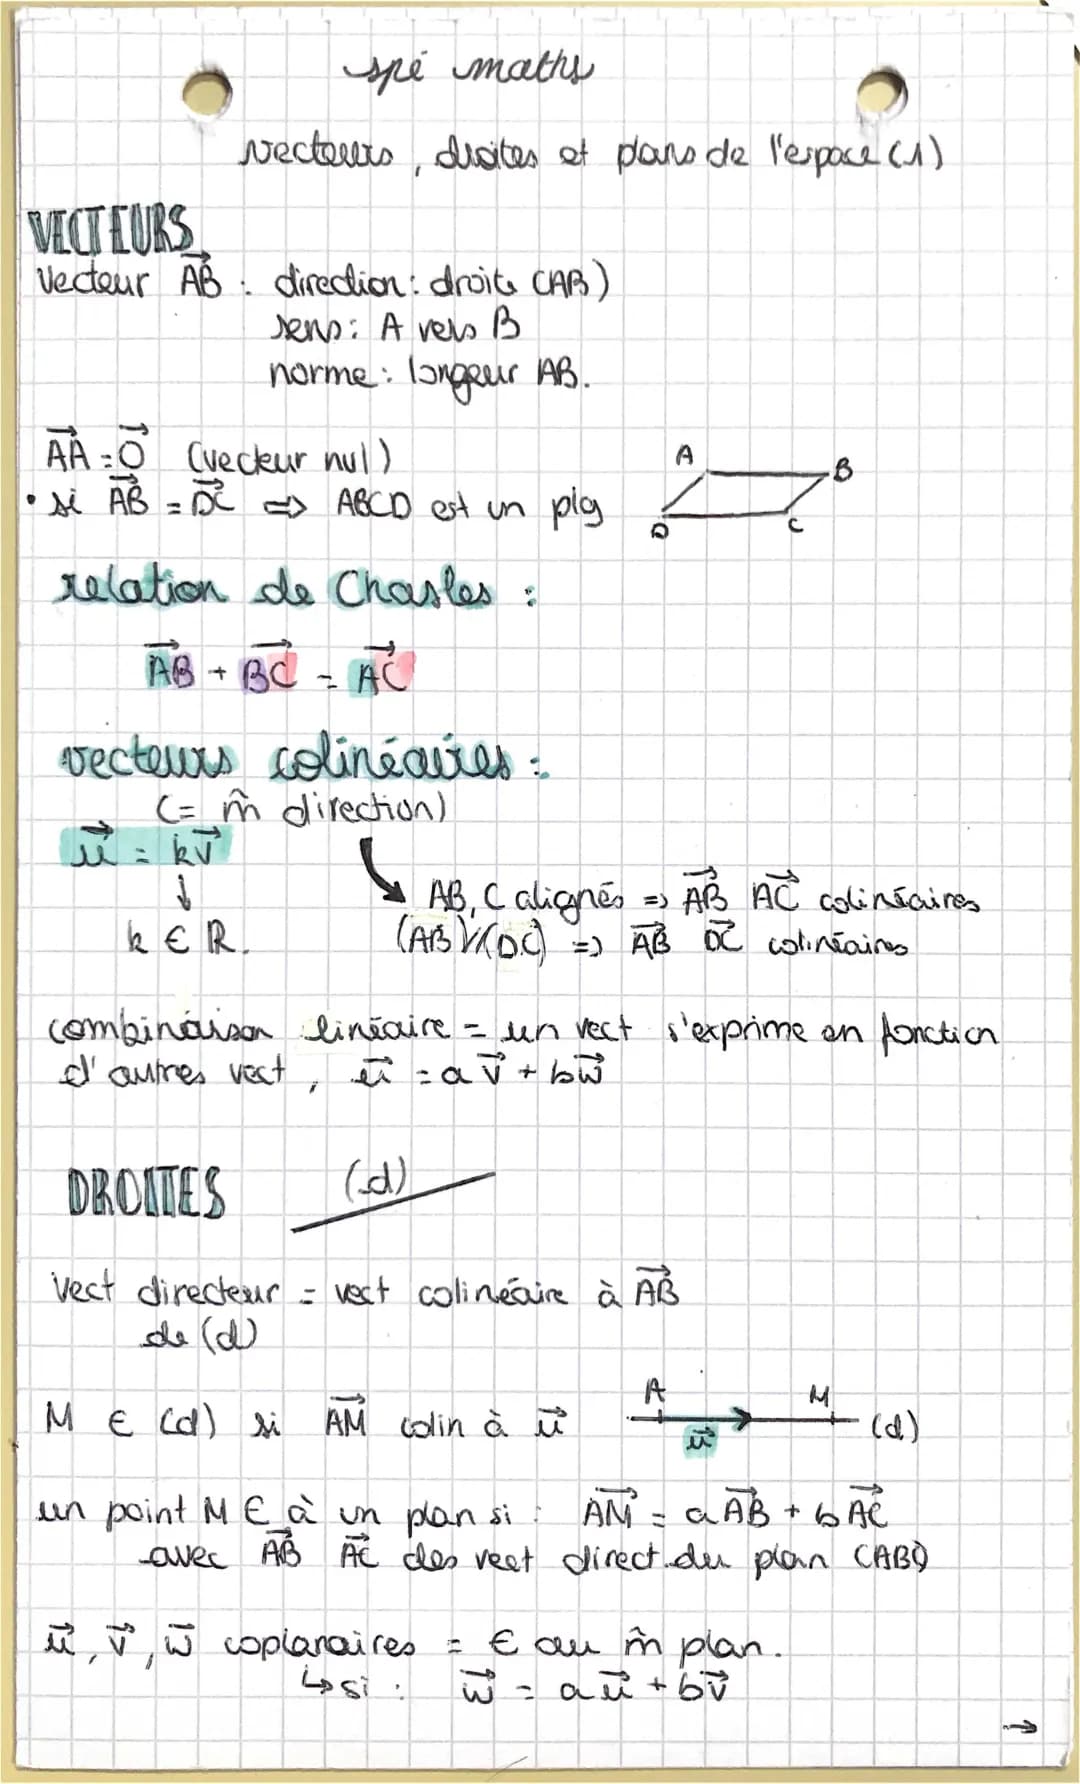 spé maths
vecteurs, droites et plans de l'espace (1)
VECTEURS
Vecteur \overrightarrow{AB} : direction : droite (AB)
sens : A vers B
norme : longeur AB.
\overrightarrow{AA} = \vec{O} (vecteur nul)
• si \overrightarrow{AB} = \overrightarrow{DC} => ABCD est un plg
A
B
D
C
relation de Chasles :
\overrightarrow{AB} + \overrightarrow{BC} = \overrightarrow{AC}
vecteurs colinéaires :
(= m̂ direction)
\vec{u} = k\vec{v}
↓
k ∈ R.
AB, C alignés => \overrightarrow{AB} \overrightarrow{AC} colinéaires
(AB)//(DC) => \overrightarrow{AB} \overrightarrow{DC} colinéaires
combinaison linéaire = un vect s'exprime en fonction
d'autres vect, \vec{u} = a\vec{v} + b\vec{w}
DROITES (d)
Vect directeur = vect colinéaire à \overrightarrow{AB}
de (d)
M ∈ (d) si \overrightarrow{AM} colin à \vec{u}
A
M
\vec{u}
(d)
un point M ∈ à un plan si : \overrightarrow{AM} = a\overrightarrow{AB} + b\overrightarrow{AC}
avec \overrightarrow{AB} \overrightarrow{AC} des vect direct. du plan (ABC)
\vec{u}, \vec{v}, \vec{w} coplanaires = ∈ au m̂ plan.
↳ si : \vec{w} = a\vec{u} + b\vec{v}
→